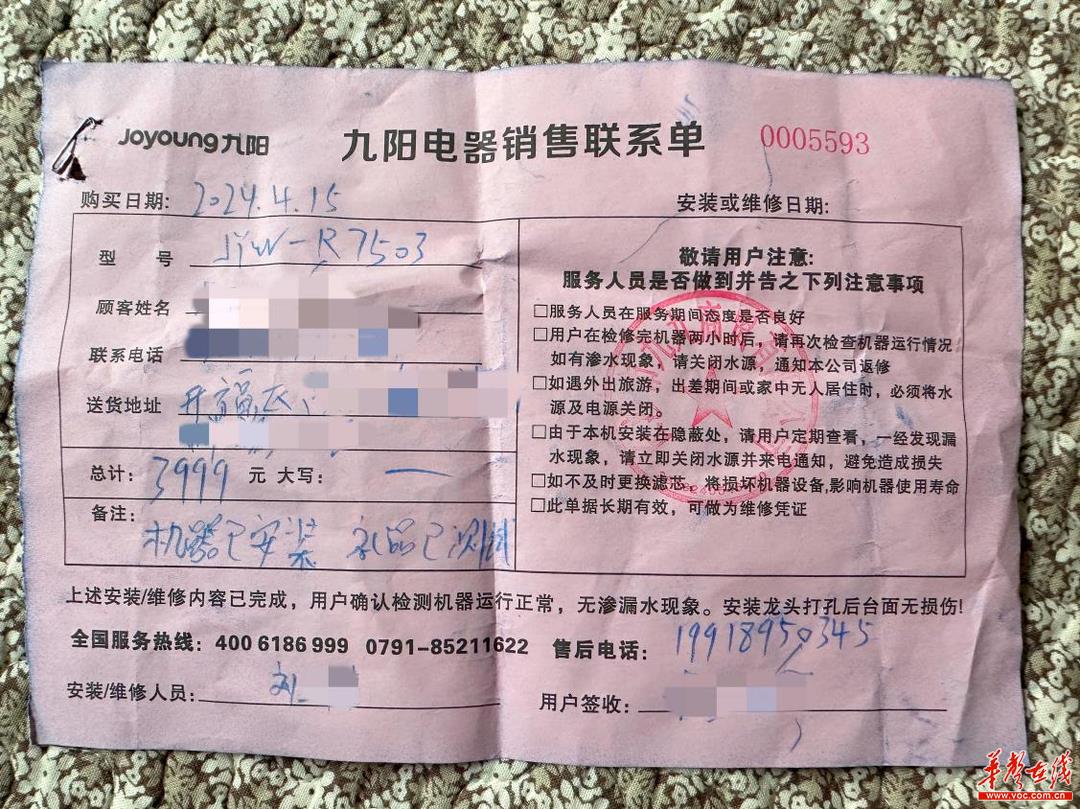 Joyoung九阳 九阳电器销售联系单 0005593
购买日期: 2024.4.15 安装或维修日期:
型 号 JYW-R7503
顾客姓名
联系电话
送货地址 开福区
总计: 3999 元 大写: 一
备注:
机器已安装 礼品已测试
敬请用户注意:
服务人员是否做到并告之下列注意事项
□服务人员在服务期间态度是否良好
□用户在检修完机器两小时后，请再次检查机器运行情况
如有渗水现象，请关闭水源，通知本公司返修
□如遇外出旅游，出差期间或家中无人居住时，必须将水
源及电源关闭。
□由于本机安装在隐蔽处，请用户定期查看，一经发现漏
水现象，请立即关闭水源并来电通知，避免造成损失
□如不及时更换滤芯。将损坏机器设备,影响机器使用寿命
□此单据长期有效，可做为维修凭证
上述安装/维修内容已完成，用户确认检测机器运行正常，无渗漏水现象。安装龙头打孔后台面无损伤!
全国服务热线: 400 6186 999 0791-85211622 售后电话: 19918950345
安装/维修人员: 刘 用户签收:
华声在线
www.voc.com.cn